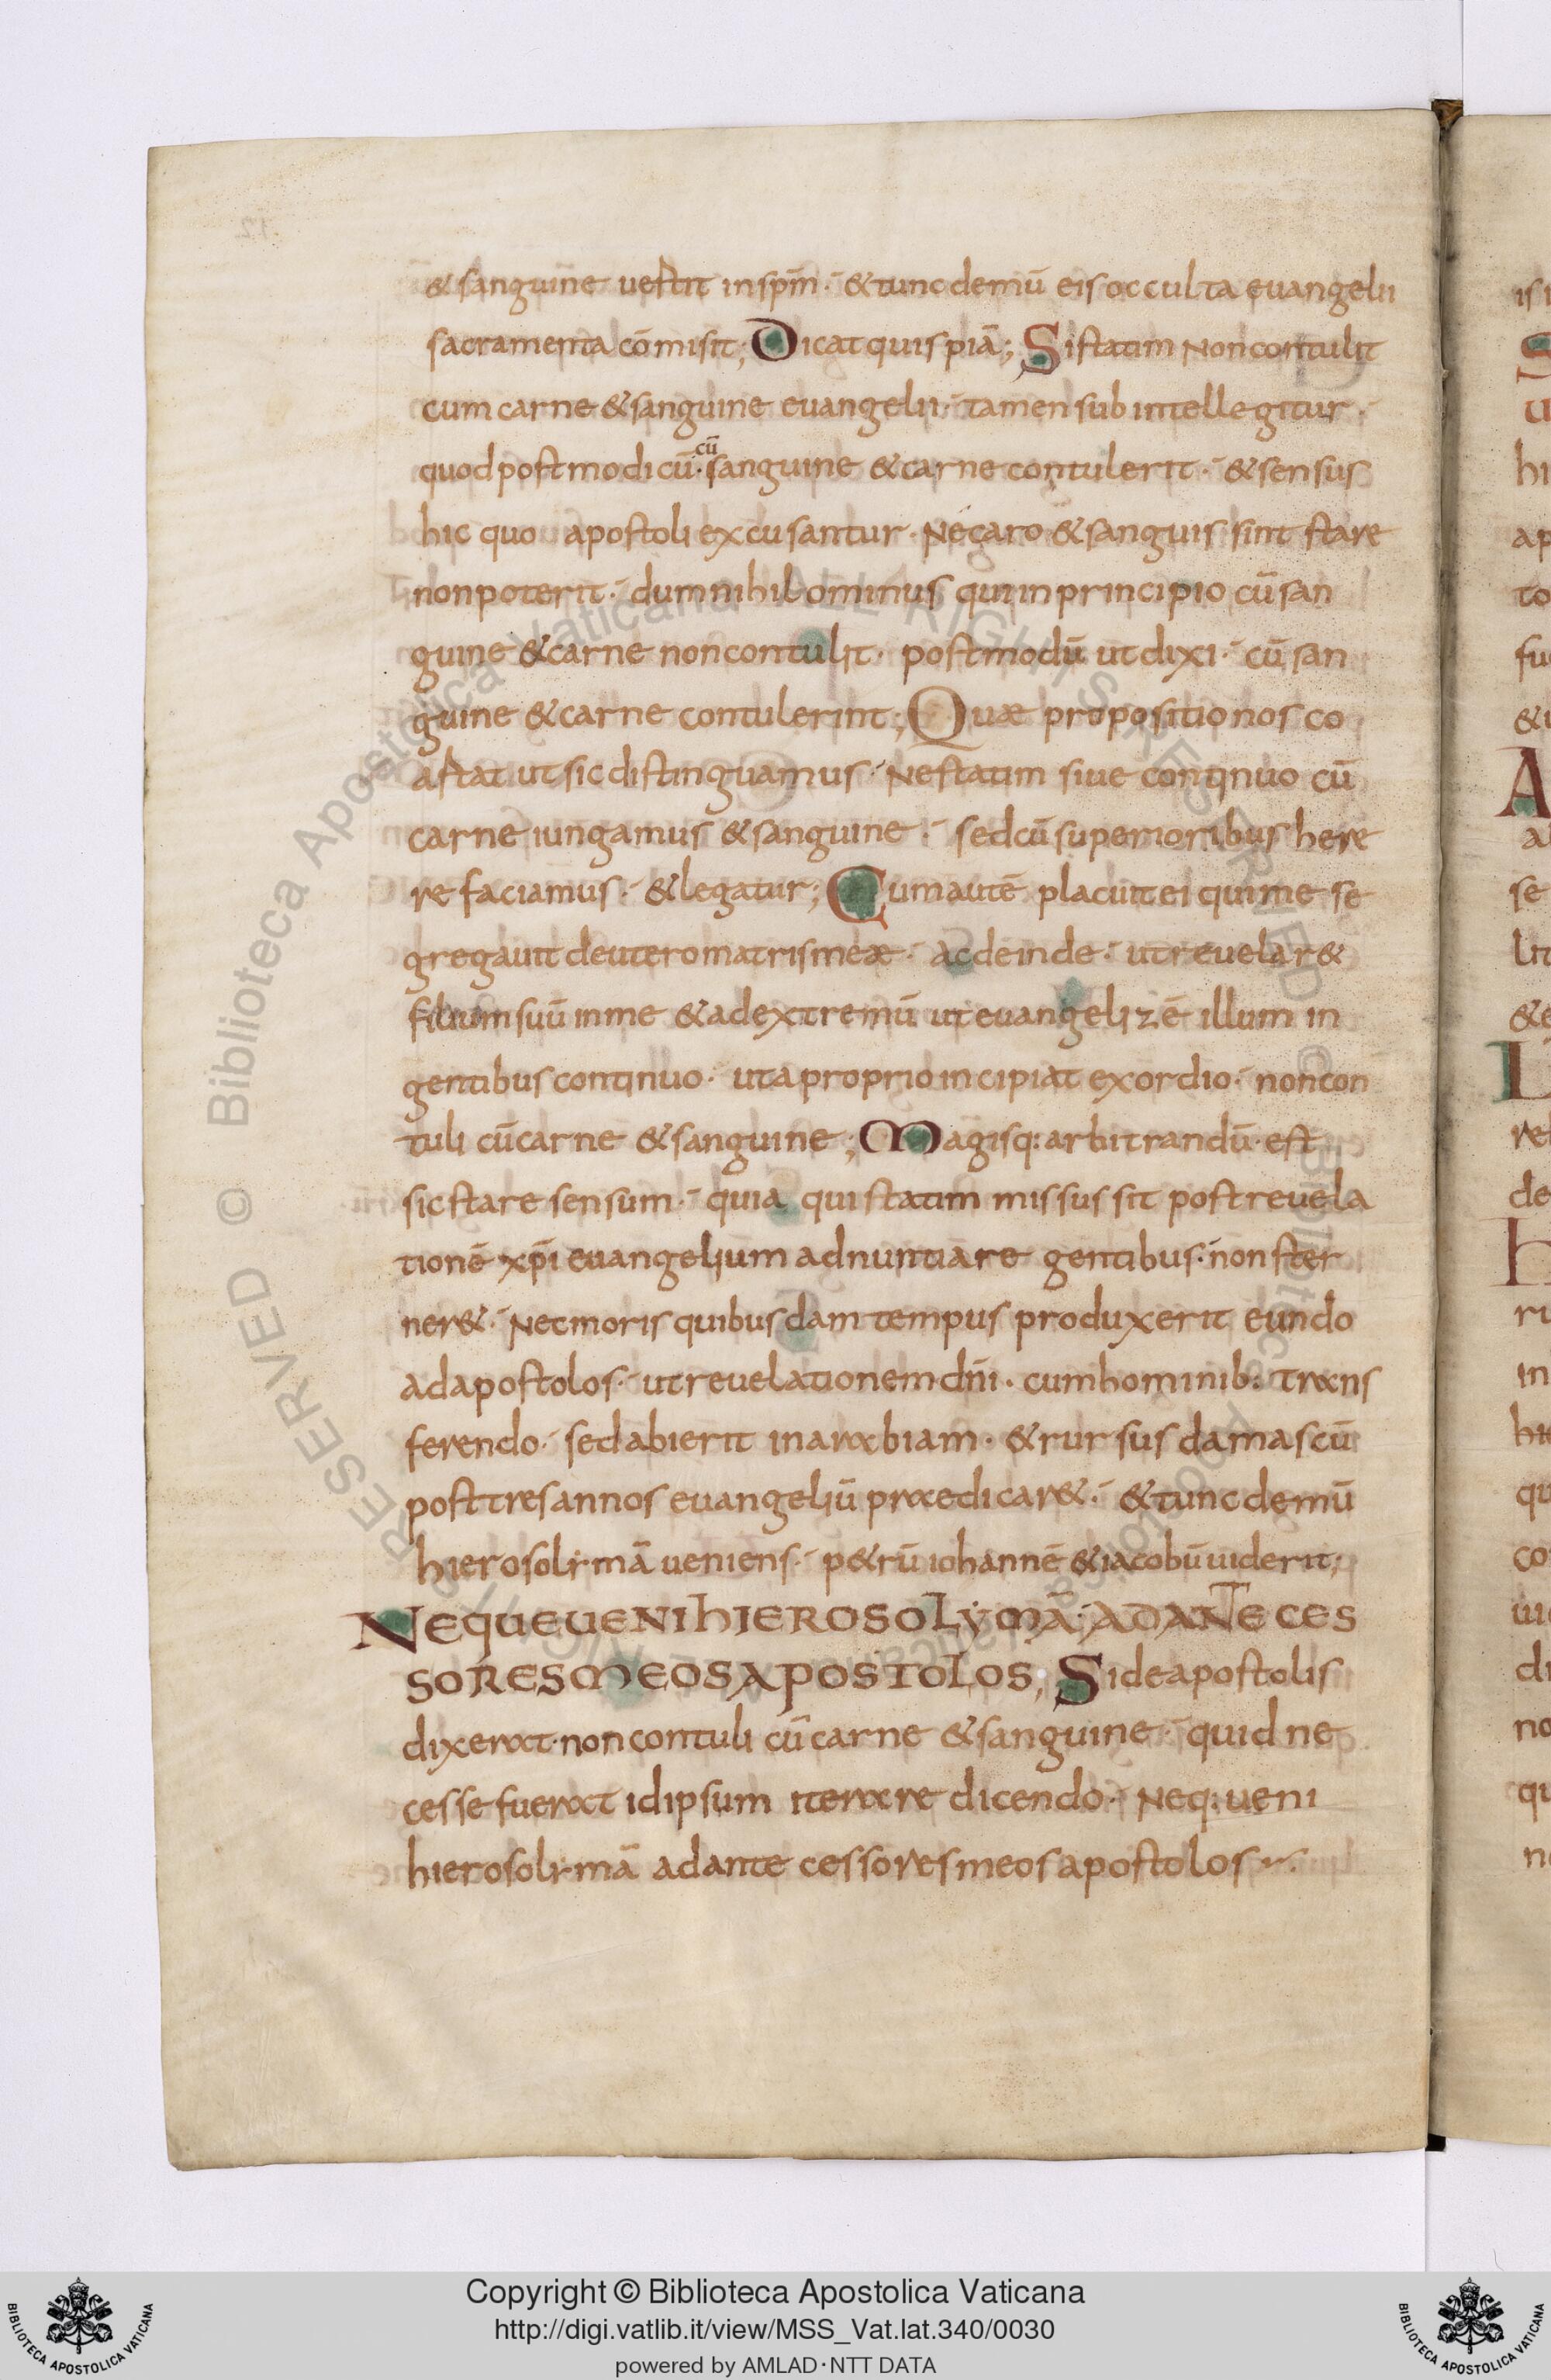 & sanguine uestit in spm̄ · & tunc demū eis occulta euangelii
sacramenta cōmisit; Dicat quispiā; Si statim non contulit
cum carne & sanguine euangelii · tamen subintellegitur ·
quod post modicū · cū sanguine & carne contulerit · & sensus
hic quo apostoli excusantur · Ne caro & sanguis sint stare
non poterit · dum nihilominus qui in principio cū san
guine & carne non contulit · postmodū ut dixi · cū san
guine & carne contulerint; Quae propositio nos co
astat ut sic distinguamus · Ne statim siue continuo cū
carne iungamus & sanguine · sed cū superioribus here
re faciamus · & legatur; Cum autē placuit ei qui me se
gregauit de utero matris meae · ac deinde · ut reuelar&
filium suū in me & ad extremū ut euangelizē illum in
gentibus continuo · ut a proprio incipiat exordio · non con
tuli cū carne & sanguine; Magisq: arbitrandū est
sic stare sensum · quia qui statim missus sit post reuela
tionē xp̄i euangelium adnuntiare gentibus · non ster
ner& · Nec moris quibusdam tempus produxerit eundo
ad apostolos · ut reuelationem dn̄i · cum hominib: trans
ferendo · sed abierit in arabiam · & rursus damascū
post tres annos euangeliū praedicar& · & tunc demū
hierosolymā ueniens · p&rū iohannē & iacobū uiderit;
NEQUE UENI HIEROSOLYMĀ; AD ANTECES
SORES MEOS APOSTOLOS; Si de apostolis
dixerat · non contuli cū carne & sanguine · quid ne
cesse fuerat id ipsum iterare dicendo · Neq: ueni
hierosolymā ad antecessores meos apostolos
Copyright © Biblioteca Apostolica Vaticana
http://digi.vatlib.it/view/MSS_Vat.lat.340/0030
powered by AMLAD·NTT DATA